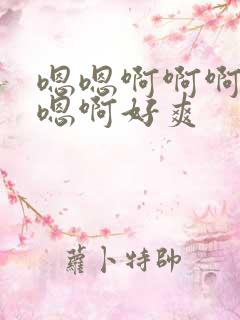 嗯嗯啊啊啊
嗯啊好爽
蘿卜特帥